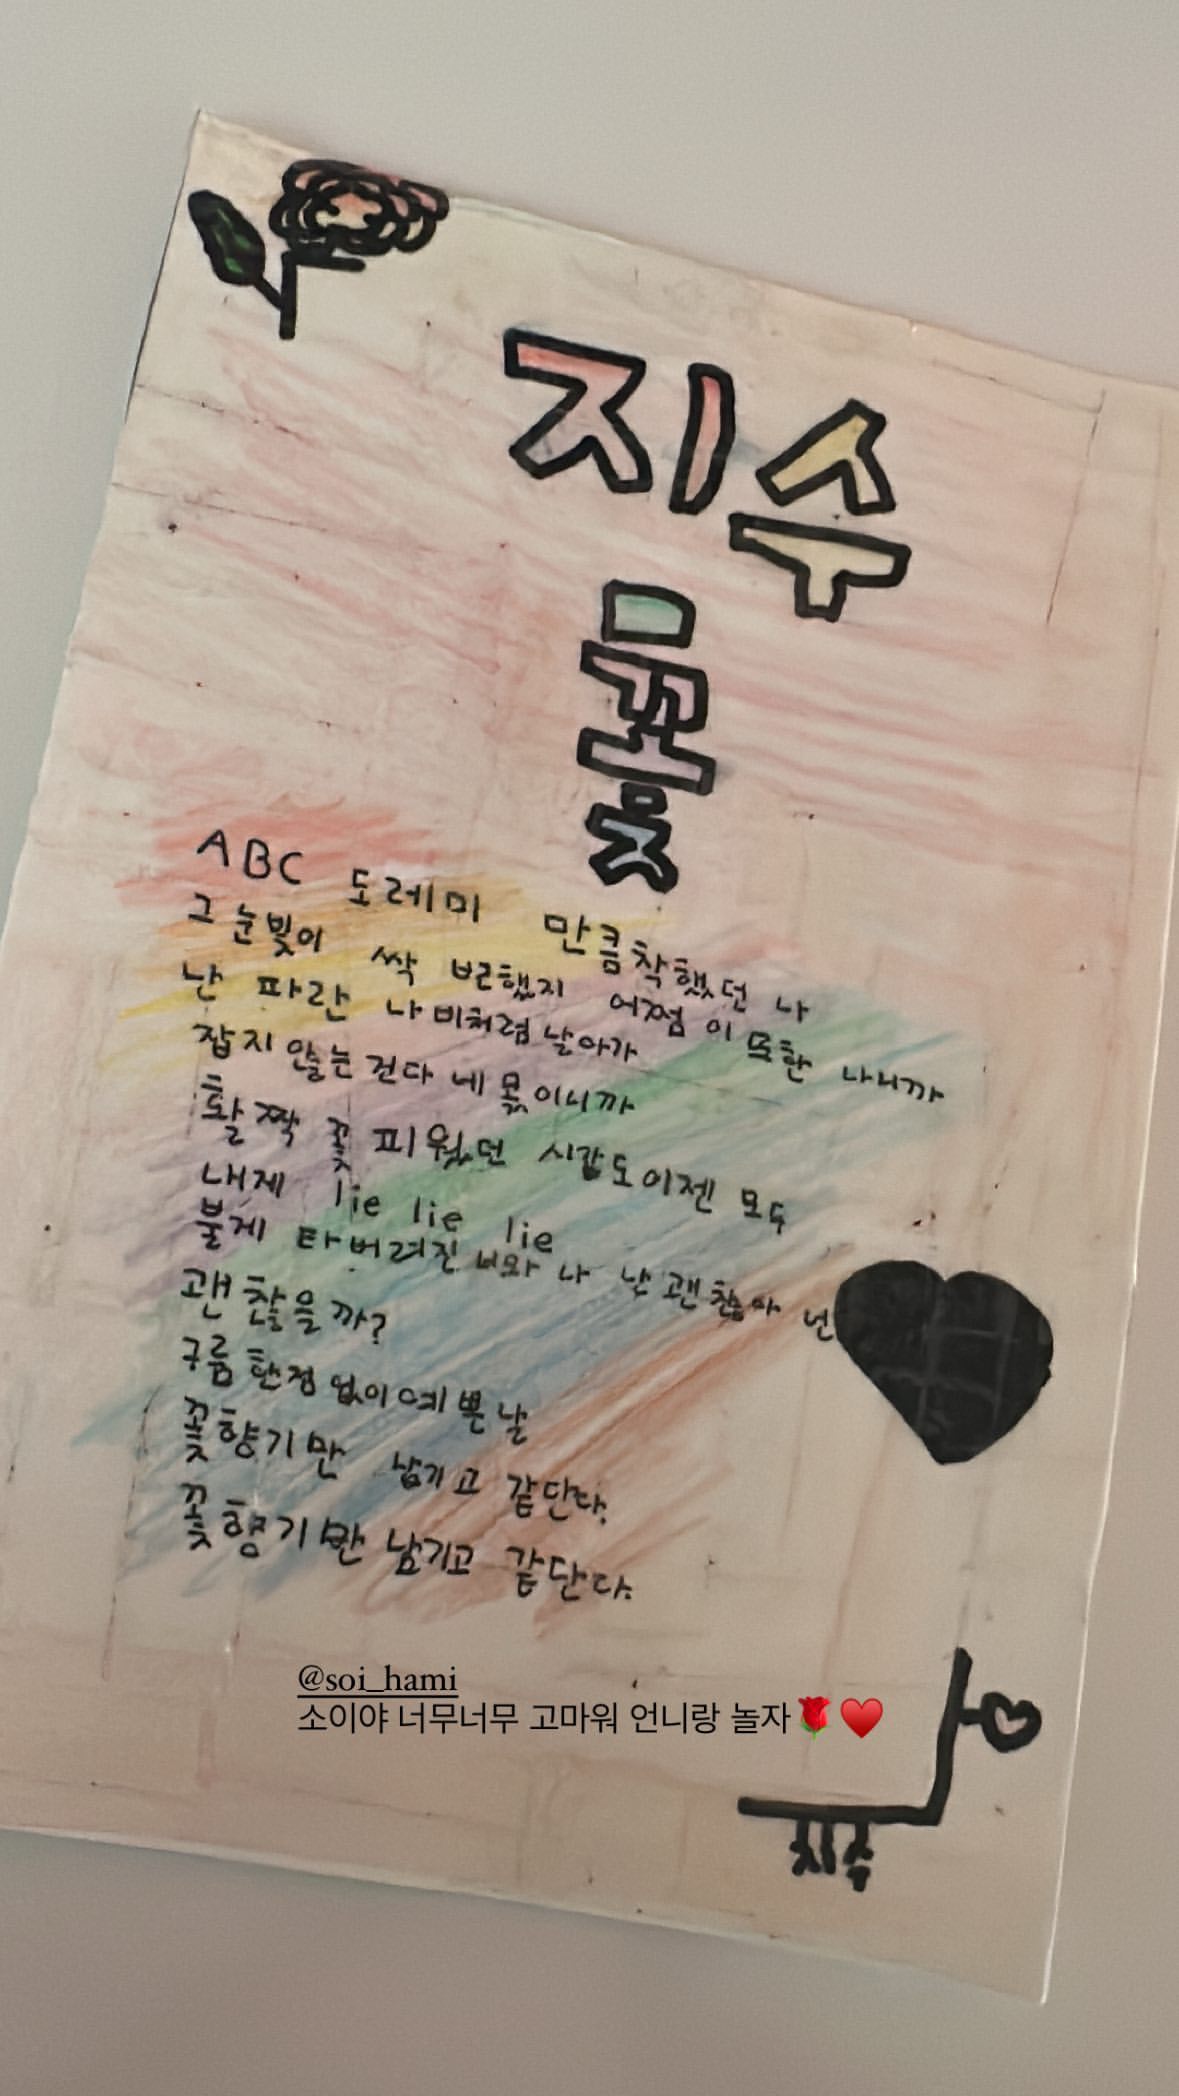 지수
꽃
ABC 도레미 만큼 착했던 나
그 눈빛이 싹 변했지 어쩜 이 또한 나니까
난 파란 나비처럼 날아가
잡지 않는 건 다 네 몫이니까
활짝 꽃 피웠던 시간도 이젠 모두
내게 lie lie lie
붉게 타버려진 너와 나 난 괜찮아 넌
괜찮을까?
구름 한 점 없이 예쁜 날
꽃향기만 남기고 갔단다.
꽃향기만 남기고 갔단다.
@soi_hami
소이야 너무너무 고마워 언니랑 놀자🌹♥️
지수